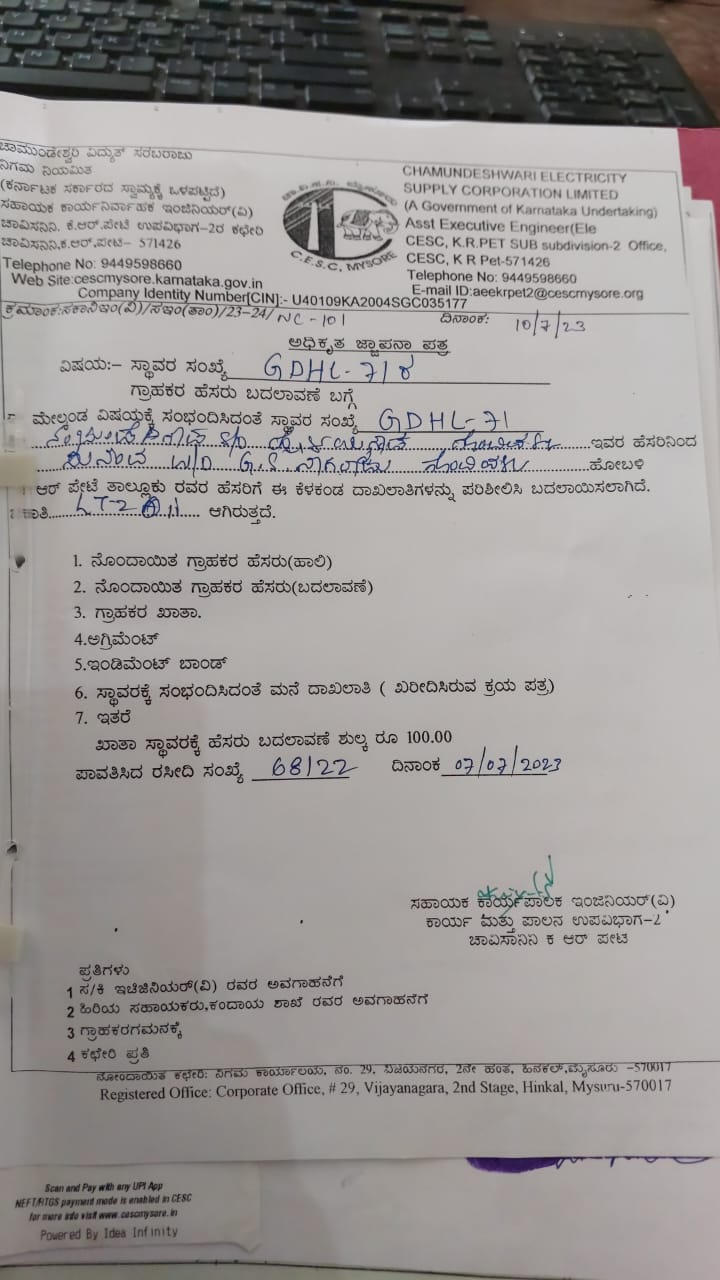 ಚಾಮುಂಡೇಶ್ವರಿ ವಿದ್ಯುತ್ ಸರಬರಾಜು
ನಿಗಮ ನಿಯಮಿತ
(ಕರ್ನಾಟಕ ಸರ್ಕಾರದ ಸ್ವಾಮ್ಯಕ್ಕೆ ಒಳಪಟ್ಟಿದೆ)
ಸಹಾಯಕ ಕಾರ್ಯನಿರ್ವಾಹಕ ಇಂಜಿನಿಯರ್(ವಿ)
ಚಾವಿಸನಿನಿ. ಕೆ.ಆರ್.ಪೇಟೆ ಉಪವಿಭಾಗ-2ರ ಕಛೇರಿ
ಚಾವಿಸನಿನಿ,ಕೆ.ಆರ್.ಪೇಟೆ- 571426
Telephone No: 9449598660
Web Site:cescmysore.karnataka.gov.in
C.E.S.C, MYSORE
CHAMUNDESHWARI ELECTRICITY
SUPPLY CORPORATION LIMITED
(A Government of Karnataka Undertaking)
Asst Executive Engineer(Ele
CESC, K.R.PET SUB subdivision-2 Office,
CESC, K R Pet-571426
Telephone No: 9449598660
E-mail ID:aeekrpet2@cescmysore.org
Company Identity Number[CIN]:- U40109KA2004SGC035177
ಕ್ರಮಾಂಕ:ಸಕಾನಿಇಂ(ವಿ)/ಸಇಂ(ತಾಂ)/23-24/ NC-101 ದಿನಾಂಕ: 10/7/23
ಅಧಿಕೃತ ಜ್ಞಾಪನಾ ಪತ್ರ
ವಿಷಯ:- ಸ್ಥಾವರ ಸಂಖ್ಯೆ GDHL-71 ರ
ಗ್ರಾಹಕರ ಹೆಸರು ಬದಲಾವಣೆ ಬಗ್ಗೆ
ಮೇಲ್ಕಂಡ ವಿಷಯಕ್ಕೆ ಸಂಭಂದಿಸಿದಂತೆ ಸ್ಥಾವರ ಸಂಖ್ಯೆ GDHL-71
S/O ಇವರ ಹೆಸರಿನಿಂದ
ಸುನಂದ W/O G.S. ನಾಗರಾಜು ಹೋಬಳಿ
ಆರ್ ಪೇಟೆ ತಾಲ್ಲೂಕು ರವರ ಹೆಸರಿಗೆ ಈ ಕೆಳಕಂಡ ದಾಖಲಾತಿಗಳನ್ನು ಪರಿಶೀಲಿಸಿ ಬದಲಾಯಿಸಲಾಗಿದೆ.
ಆಗಿರುತ್ತದೆ.
1. ನೊಂದಾಯಿತ ಗ್ರಾಹಕರ ಹೆಸರು(ಹಾಲಿ)
2. ನೊಂದಾಯಿತ ಗ್ರಾಹಕರ ಹೆಸರು(ಬದಲಾವಣೆ)
3. ಗ್ರಾಹಕರ ಖಾತಾ.
4.ಅಗ್ರಿಮೆಂಟ್
5.ಇಂಡಿಮೆಂಟ್ ಬಾಂಡ್
6. ಸ್ಥಾವರಕ್ಕೆ ಸಂಭಂದಿಸಿದಂತೆ ಮನೆ ದಾಖಲಾತಿ ( ಖರೀದಿಸಿರುವ ಕ್ರಯ ಪತ್ರ)
7. ಇತರೆ
ಖಾತಾ ಸ್ಥಾವರಕ್ಕೆ ಹೆಸರು ಬದಲಾವಣೆ ಶುಲ್ಕ ರೂ 100.00
ಪಾವತಿಸಿದ ರಸೀದಿ ಸಂಖ್ಯೆ 68122 ದಿನಾಂಕ 07/07/2023
ಸಹಾಯಕ ಕಾರ್ಯಪಾಲಕ ಇಂಜಿನಿಯರ್(ವಿ)
ಕಾರ್ಯ ಮತ್ತು ಪಾಲನ ಉಪವಿಭಾಗ-2
ಚಾವಿಸಾನಿನಿ ಕ ಆರ್ ಪೇಟೆ
ಪ್ರತಿಗಳು
1 ಸ/ಕಿ ಇಚೆಜಿನಿಯರ್(ವಿ) ರವರ ಅವಗಾಹನೆಗೆ
2 ಹಿರಿಯ ಸಹಾಯಕರು,ಕಂದಾಯ ಶಾಖೆ ರವರ ಅವಗಾಹನೆಗೆ
3 ಗ್ರಾಹಕರಗಮನಕ್ಕೆ
4 ಕಛೇರಿ ಪ್ರತಿ
ನೋಂದಾಯಿತ ಕಛೇರಿ: ನಿಗಮ ಕಾರ್ಯಾಲಯ, ನಂ. 29, ವಿಜಯನಗರ, 2ನೇ ಹಂತ, ಹಿನಕಲ್,ಮೈಸೂರು -570017
Registered Office: Corporate Office, # 29, Vijayanagara, 2nd Stage, Hinkal, Mysuru-570017
Scan and Pay with any UPI App
NEFT/RTGS payment mode is enabled in CESC
for more info visit www.cescmysore.in
Powered By Idea Infinity